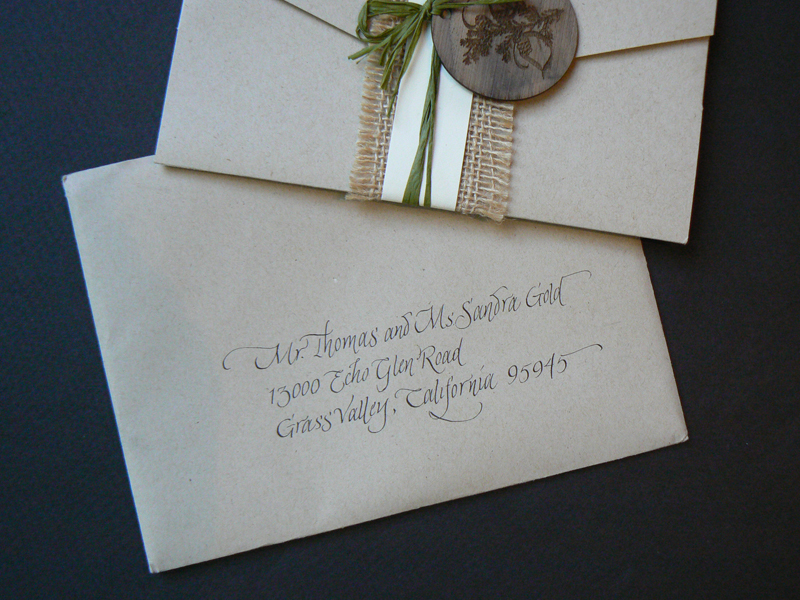 Mr. Thomas and Ms Sandra Gold
13000 Echo Glen Road
Grass Valley, California 95945